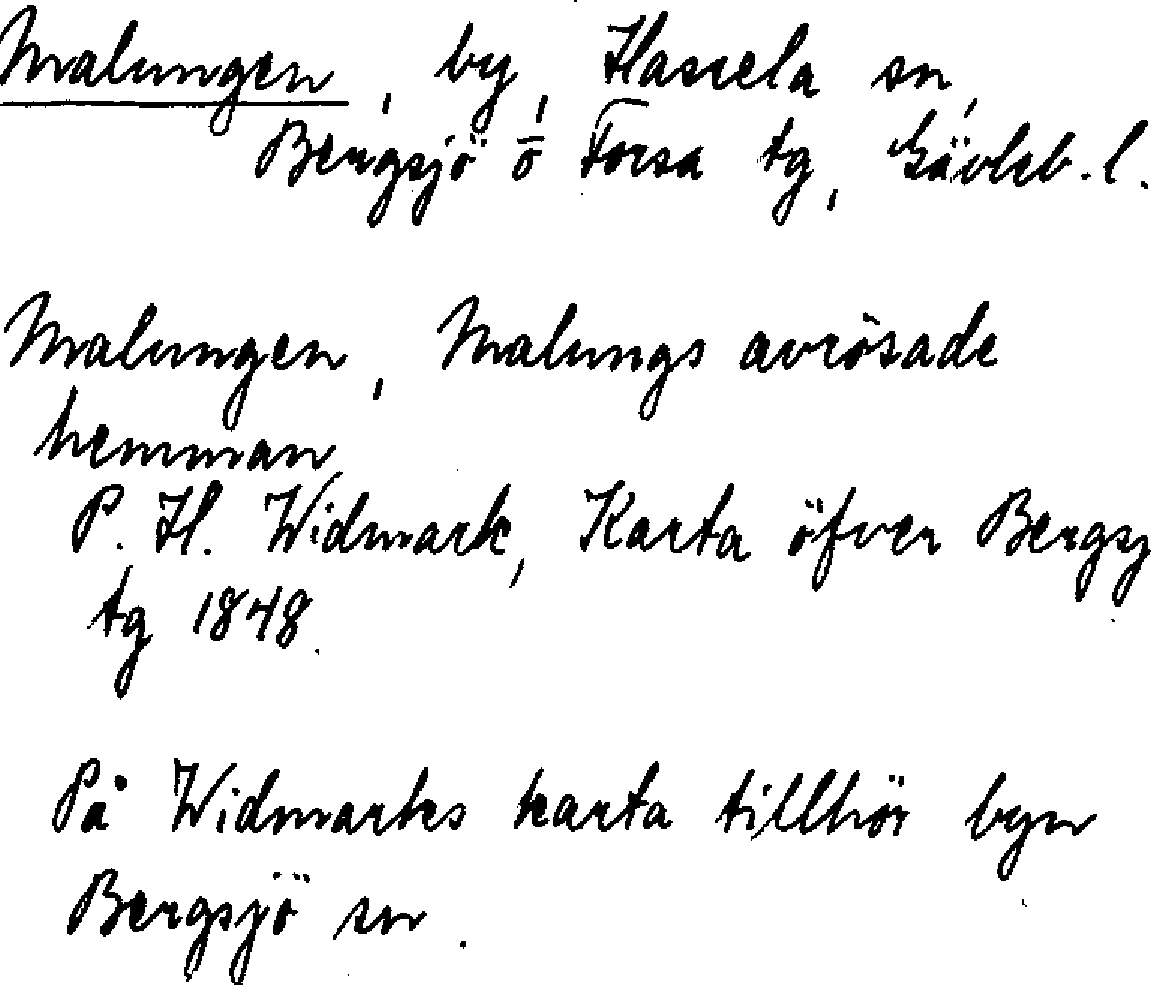 Malungen, by, Hassela sn,
Bergsjö o Forsa tg, Gävleb. l.
Malungen, Malungs avrösade
hemman
P. H. Widmark, Karta öfver Bergsj
tg 1848.
På Widmarks karta tillhör byn
Bergsjö sn.